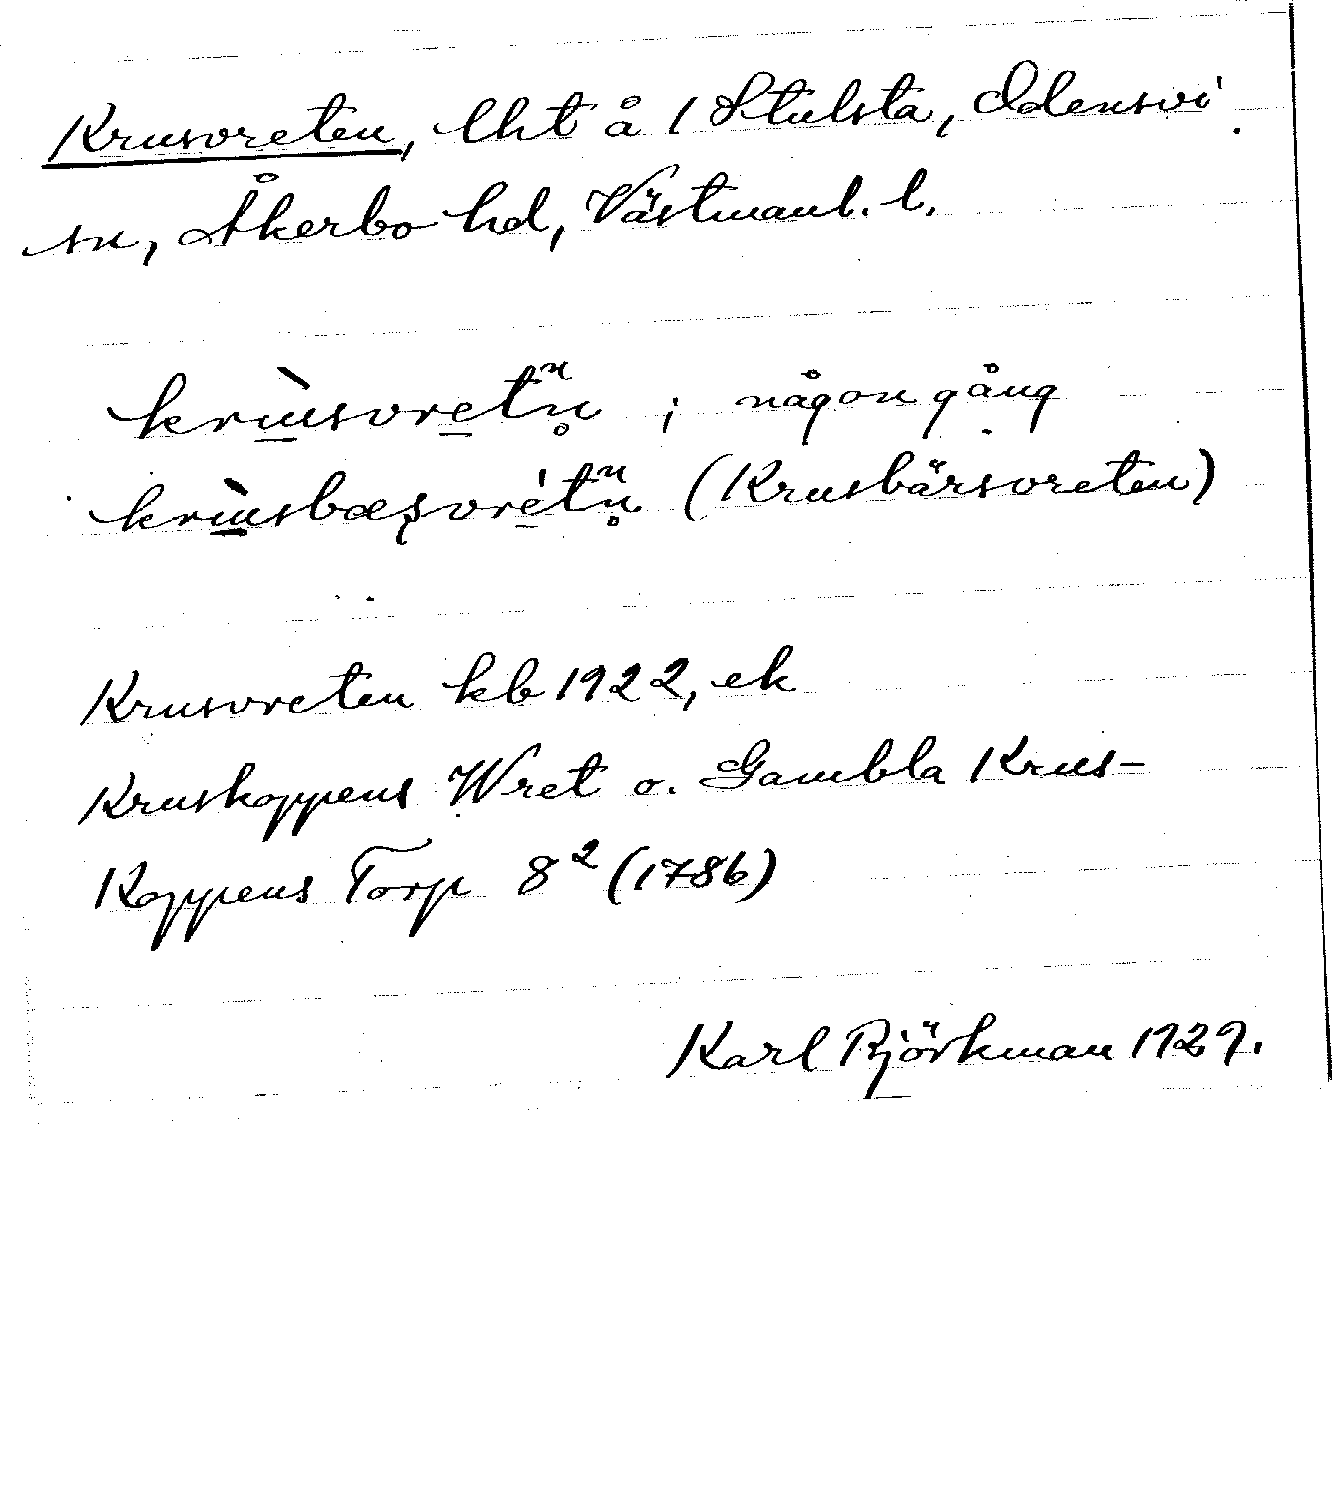 Krusvreten, lht å 1 Stulsta, Odensvi
sn, Åkerbo hd, Västmanl. l.
krùsvretn̥ ; någon gång
krùsbæʂvrétn̥ (Krusbärsvreten)
Krusvreten kb 1922, ek
Kruskoppens Wret o. Gambla Krus-
Koppens Torp 8² (1786)
Karl Björkman 1929.